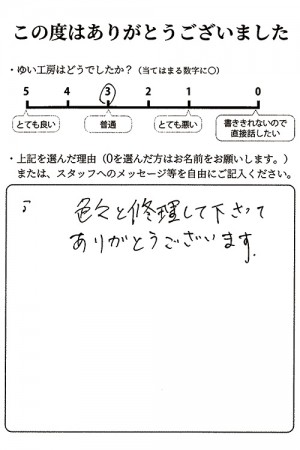 この度はありがとうございました
・ゆい工房はどうでしたか？（当てはまる数字に○）
5 4 3 2 1 0
とても良い 普通 とても悪い 書ききれないので
直接話したい
・上記を選んだ理由（0を選んだ方はお名前をお願いします。）
または、スタッフへのメッセージ等を自由にご記入ください。
色々と修理して下さって
ありがとうございます。